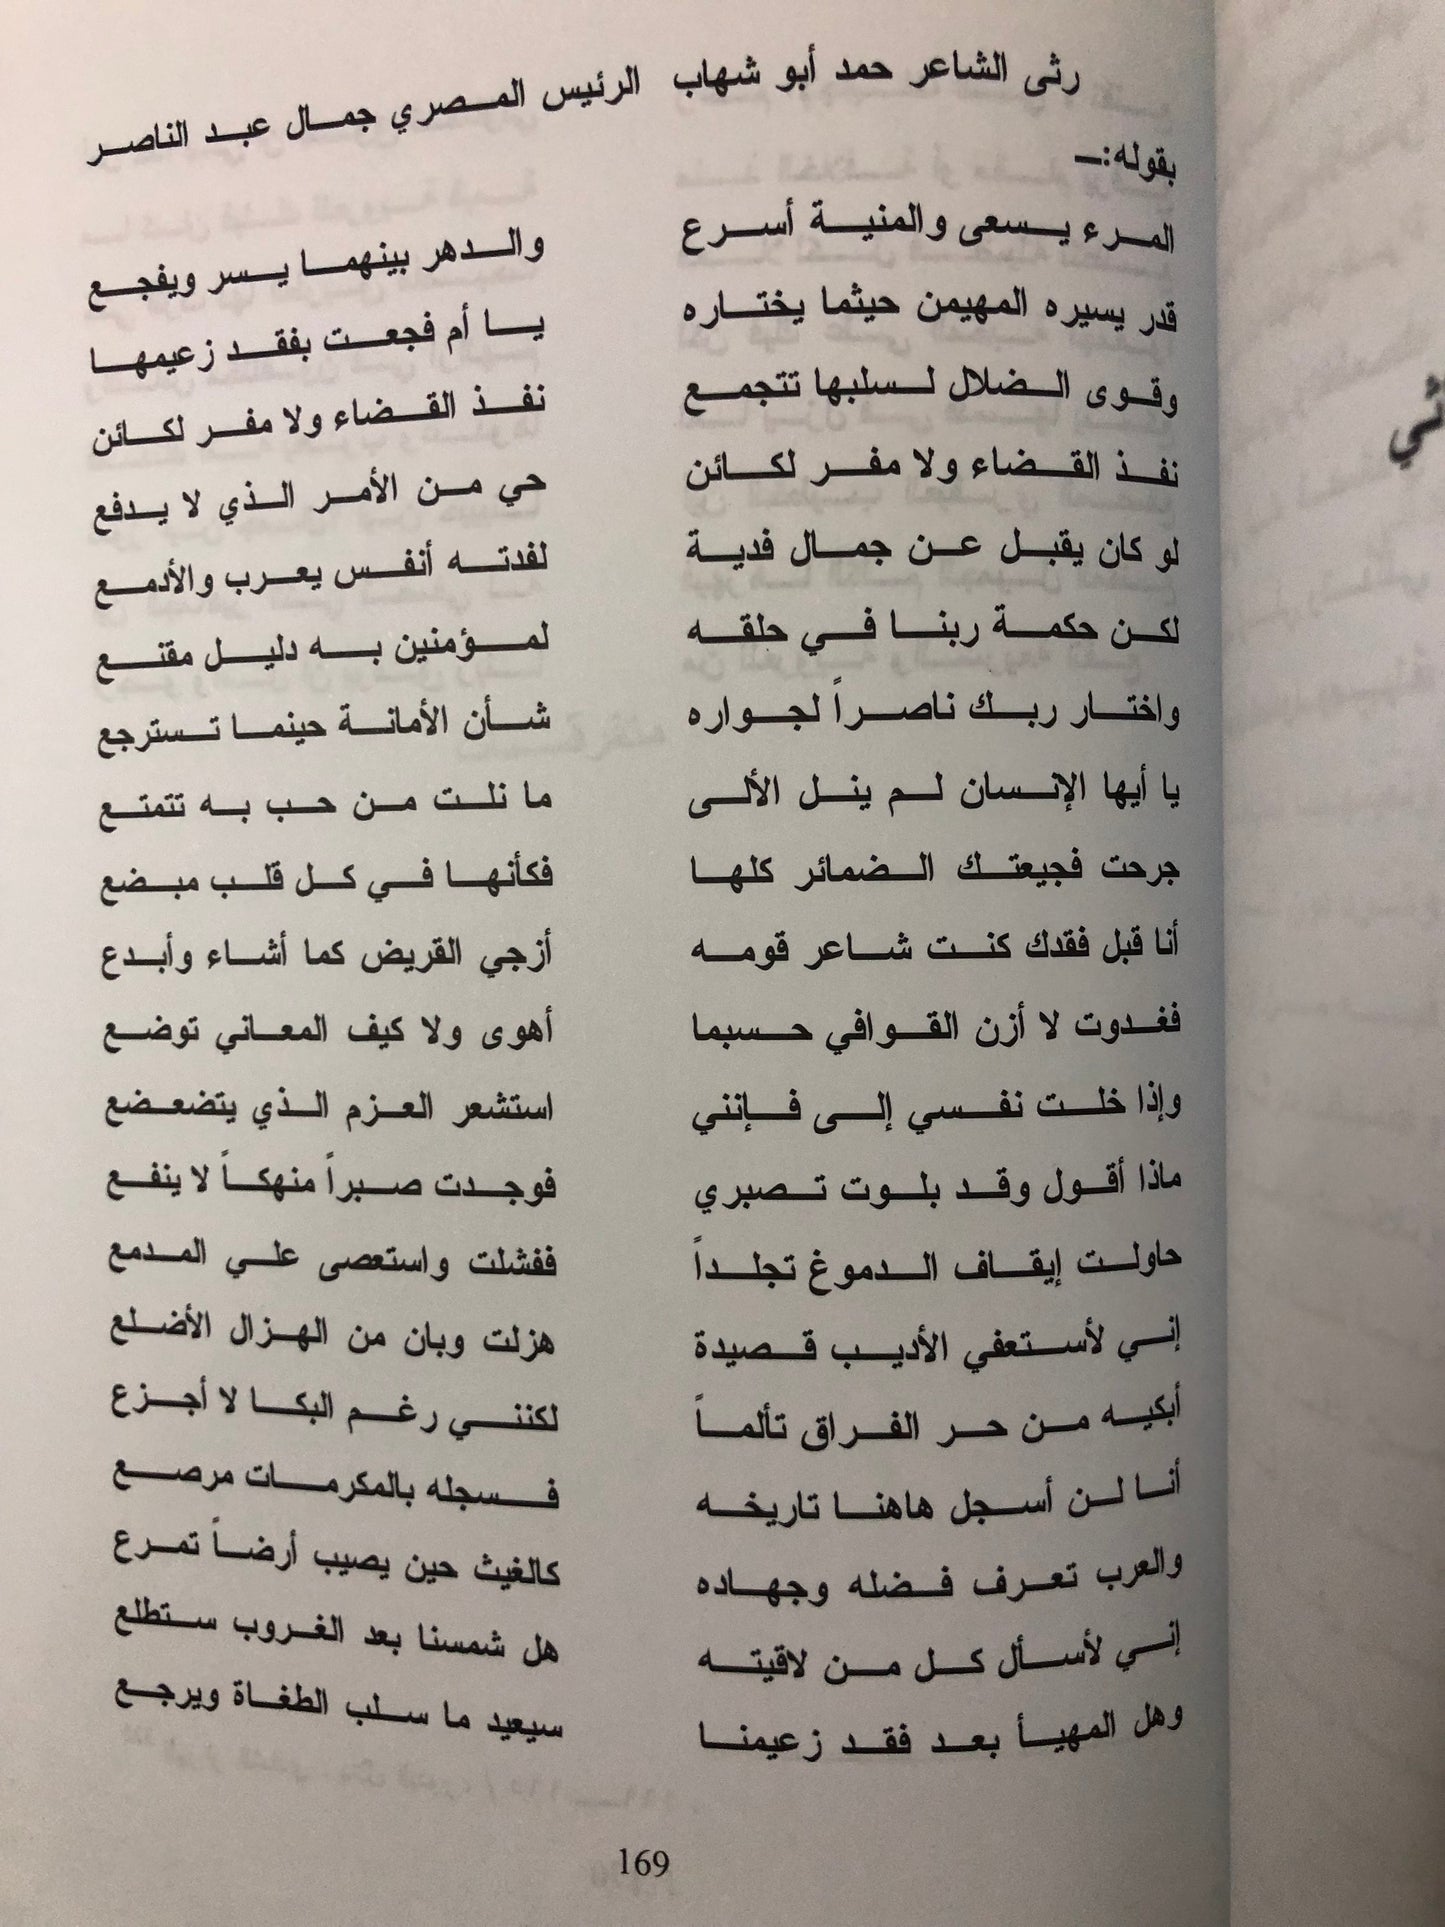 رثى الشاعر حمد أبو شهاب الرئيس المصري جمال عبد الناصر
بقوله:ـ
المرء يسعى والمنية أسرع والدهر بينهما يسر ويفجع
قدر يسيره المهيمن حيثما يختاره يا أم فجعت بفقد زعيمها
وقوى الضلال لسلبها تتجمع نفذ القضاء ولا مفر لكائن
نفذ القضاء ولا مفر لكائن حي من الأمر الذي لا يدفع
لو كان يقبل عن جمال فدية لفدته أنفس يعرب والأدمع
لكن حكمة ربنا في حلقه لمؤمنين به دليل مقتع
واختار ربك ناصراً لجواره شأن الأمانة حينما تسترجع
يا أيها الإنسان لم ينل الألى ما نلت من حب به تتمتع
جرحت فجيعتك الضمائر كلها فكأنها في كل قلب مبضع
أنا قبل فقدك كنت شاعر قومه أزجي القريض كما أشاء وأبدع
فغدوت لا أزن القوافي حسبما أهوى ولا كيف المعاني توضع
وإذا خلت نفسي إلى فإنني استشعر العزم الذي يتضعضع
ماذا أقول وقد بلوت تصبري فوجدت صبراً منهكاً لا ينفع
حاولت إيقاف الدموغ تجلداً ففشلت واستعصى علي المدمع
إني لأستعفي الأديب قصيدة هزلت وبان من الهزال الأضلع
أبكيه من حر الفراق تألماً لكنني رغم البكا لا أجزع
أنا لن أسجل هاهنا تاريخه فسجله بالمكرمات مرصع
والعرب تعرف فضله وجهاده كالغيث حين يصيب أرضاً تمرع
إني لأسأل كل من لاقيته هل شمسنا بعد الغروب ستطلع
وهل المهيأ بعد فقد زعيمنا سيعيد ما سلب الطغاة ويرجع
169